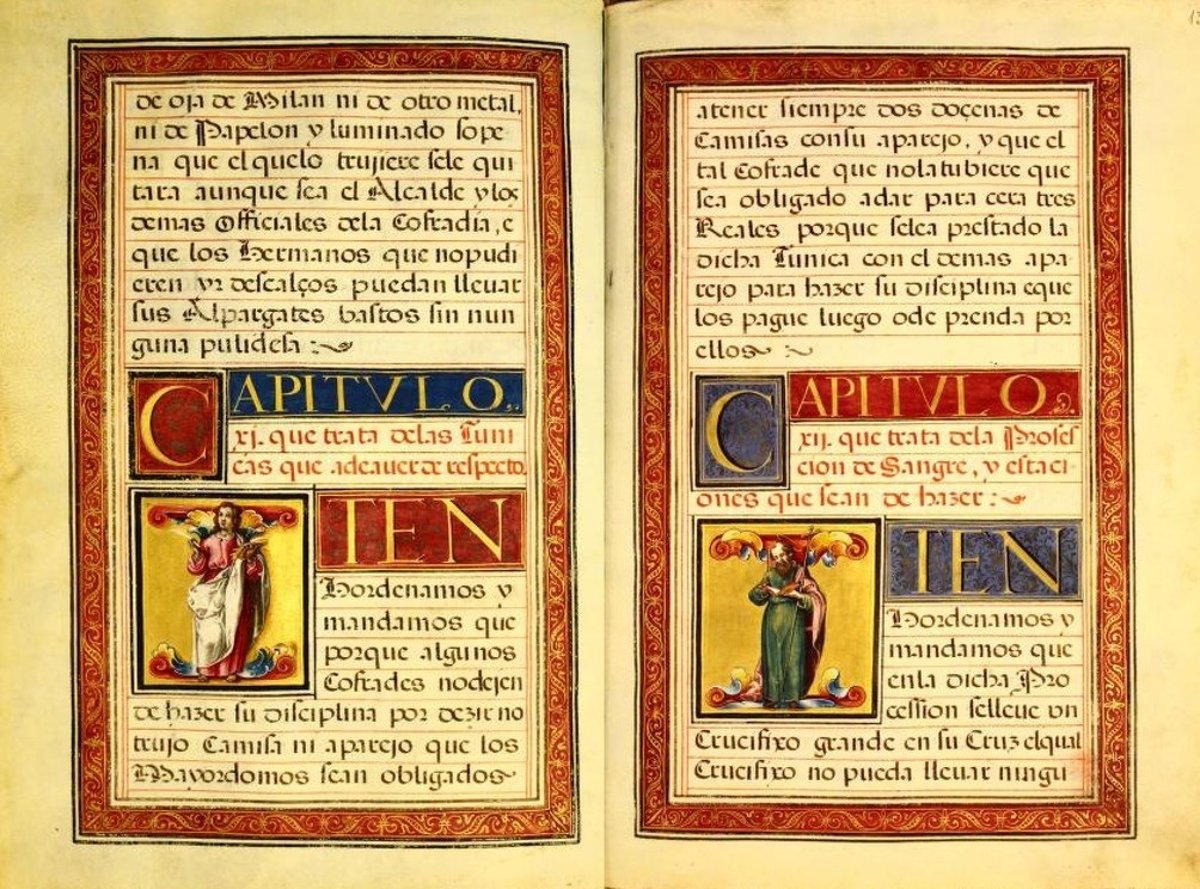 de oja de Milan ni de otro metal,
ni de Papelon y luminado sope
na que el quelo trujiere sele qui
tara aunque sea el Alcalde y los
demas Officiales dela Cofradia, e
que los Hermanos que nopudi
eren yr descalços puedan llevar
sus Alpargates bastos sin nun
guna pulidesa :~
CAPITVLO.
xj. que trata delas Tuni
cas que adeaver de respecto.
ITEN
Hordenamos y
mandamos que
porque algunos
Cofrades nodejen
de hazer su disciplina por dezir no
trujo Camisa ni aparejo que los
Mayordomos sean obligados
atener siempre dos doçenas de
Camisas consu aparejo, y que el
tal Cofrade que nolatubiere que
sea obligado adar para cera tres
Reales porque selea prestado la
dicha Tunica con el demas apa
rejo para hazer su disciplina eque
los pague luego ode prenda por
ellos :~
CAPITVLO.
xij. que trata dela Proses
cion de Sangre, y estaci
ones que sean de hazer :~
ITEN
Hordenamos y
mandamos que
enla dicha Pro
cession selleve un
Crucifixo grande en su Cruz elqual
Crucifixo no pueda llevar ningu